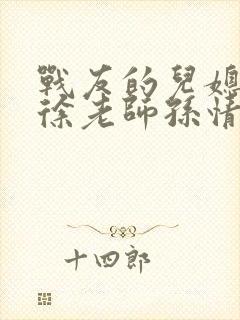 戰友的兒媳
徐老師孫情
十四郎